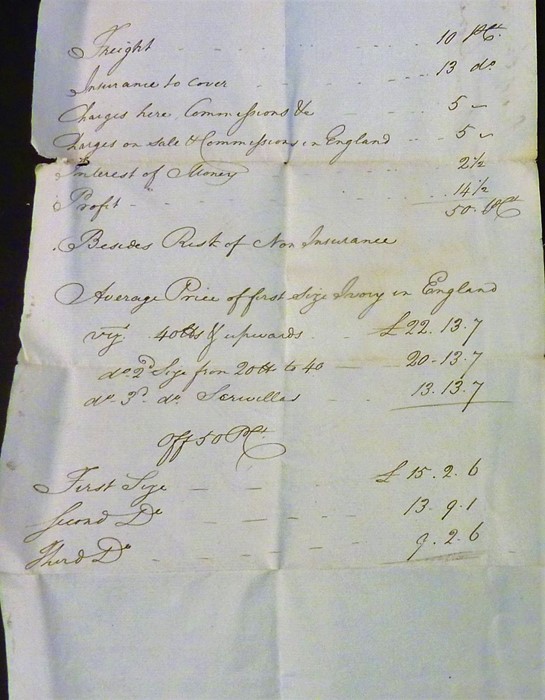 Freight - - - - - 10 P Ct.
Insurance to cover - - - - 13 do
Charges here, Commissions &c - - - 5 ~
Charges on Sale & Commissions in England - - 5 ~
Interest of Money - - - 2 1/2
Profit - - - - 14 1/2
50 P Ct
Besides Risk of Non Insurance
Average Price of first Size Ivory in England
vizt. 40 lbs & upwards - - £22.13.7
do 2d Size from 20 lb to 40 — — 20-13.7
do 3d. do. Scrivellas - - 13.13.7
Off 50 P Ct.
First Size — — — £15.2.6
Second Do — — — 13.9.1
Third Do - - - 9.2.6